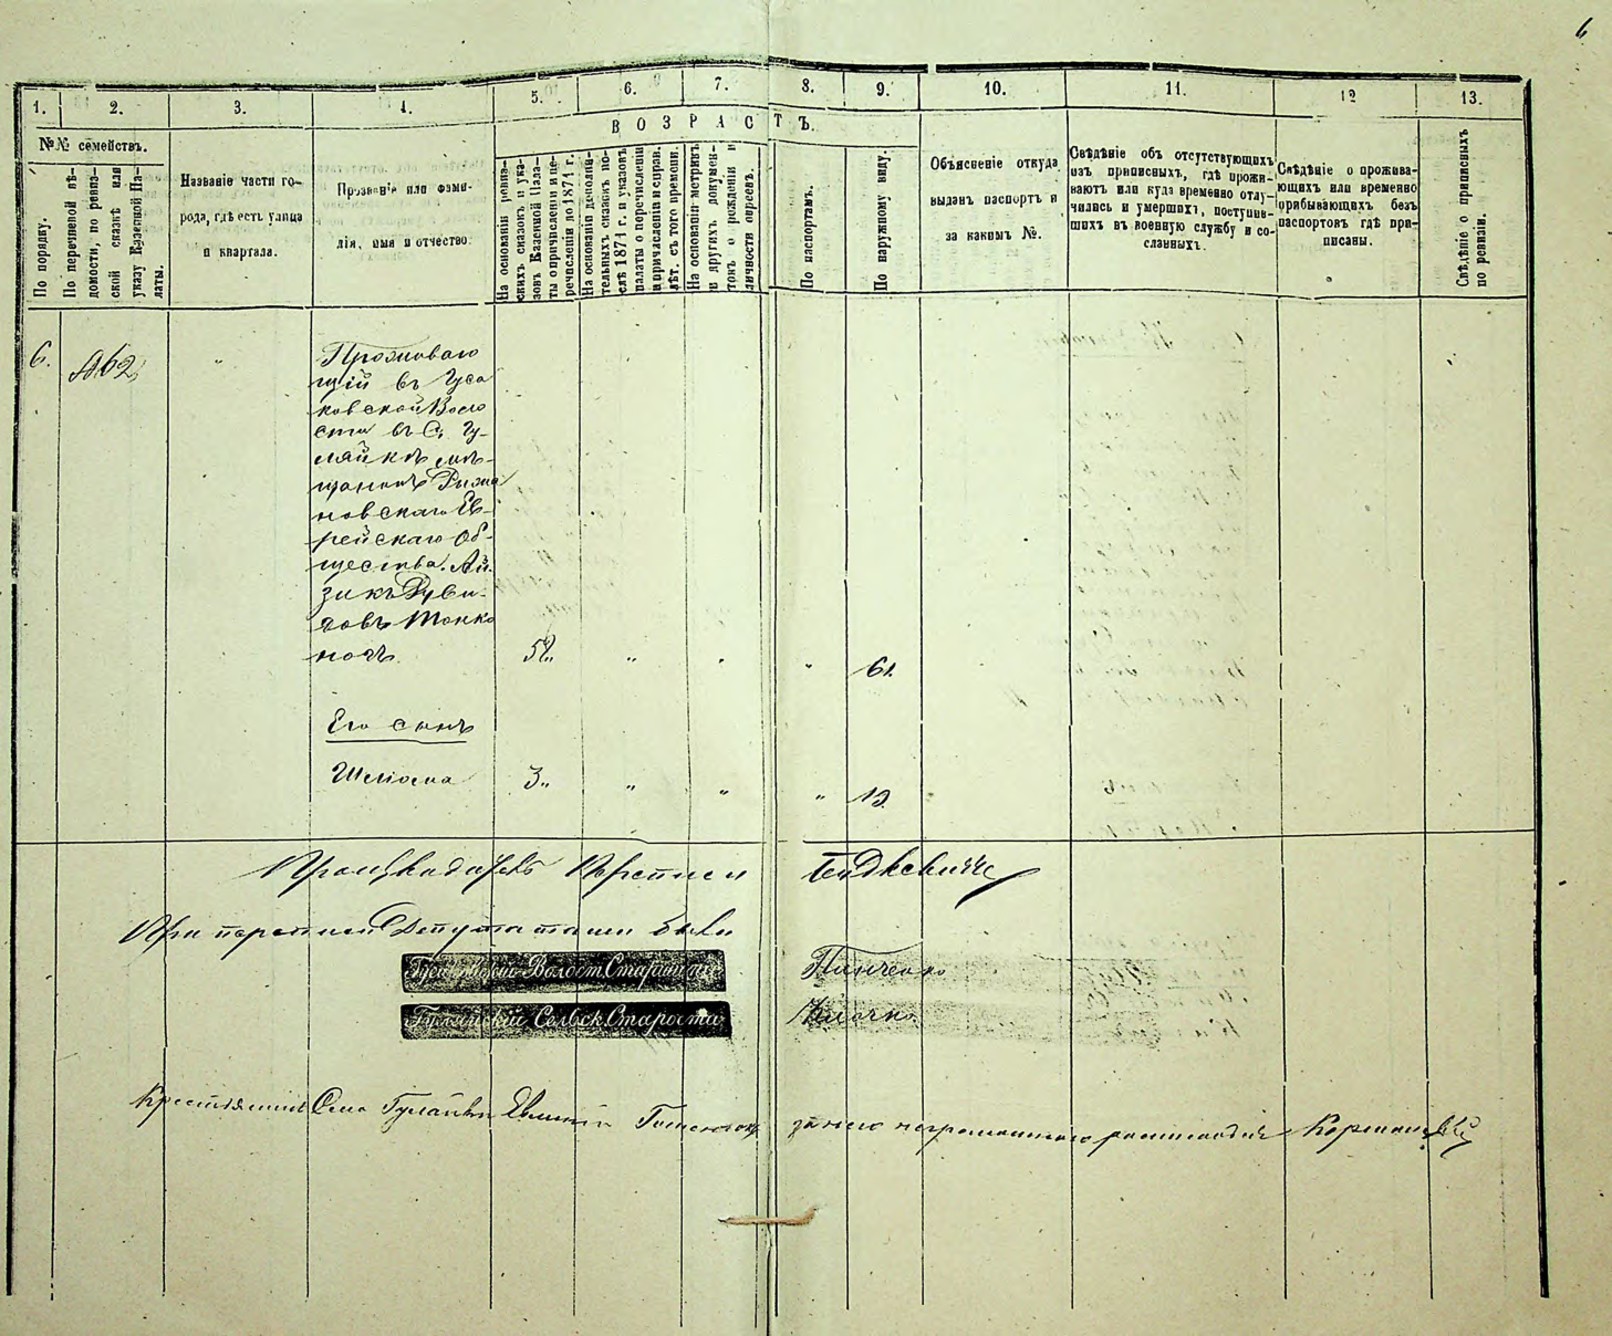 6
1. 2. 3. 4. 5. 6. 7. 8. 9. 10. 11. 12 13.
№№ семействъ.
По порядку.
По перечневой вѣ-
домости, по ревиз-
ской сказкѣ или
указу Казенной Па-
латы.
Названіе части го-
рода, гдѣ есть улица
и квартала.
Прозваніе или фами-
лія, имя и отчество.
ВОЗРАСТЪ.
На основаніи ревиз-
скихъ сказокъ и ука-
зовъ Казенной Пала-
ты о причисленіи и пе-
речисленіи до 1871 г.
На основаніи дополни-
тельныхъ сказокъ по-
слѣ 1871 г. и указовъ
палаты о перечисленіи
и причисленіи и справ.
лѣт. съ того времени.
На основаніи метрикъ
и другихъ докумен-
товъ о рожденіи и
личности евреевъ.
По паспортамъ.
По наружному виду.
Объясненіе откуда
выданъ паспортъ и
за какимъ №.
Свѣдѣніе объ отсутствующихъ
изъ приписныхъ, гдѣ прожи-
ваютъ или куда временно отлу-
чились и умершихъ, поступив-
шихъ въ военную службу и со-
сланныхъ.
Свѣдѣніе о прожива-
ющихъ или временно
прибывающихъ безъ
паспортовъ гдѣ при-
писаны.
Свѣдѣніе о приписныхъ
по ревизіи.
6. №62 "
Проживаю
щій въ Гуса
ковской Воло
сти въ С. Гу-
ляйкѣ мѣ-
щанинъ Рыжа
новскаго Ев-
рейскаго Об-
щества. Ай-
зикъ Дуви-
довъ Тонко
ногъ 52. " " " 61.
Его сынъ
Шлiома 3. " " " 13.
При переписи Депутатами были
Гусаковскій Волост. Старшина Пинченко
Гуляйскій Сельск. Староста
Крестьянинъ Села Гуляйки за него неграмотнаго